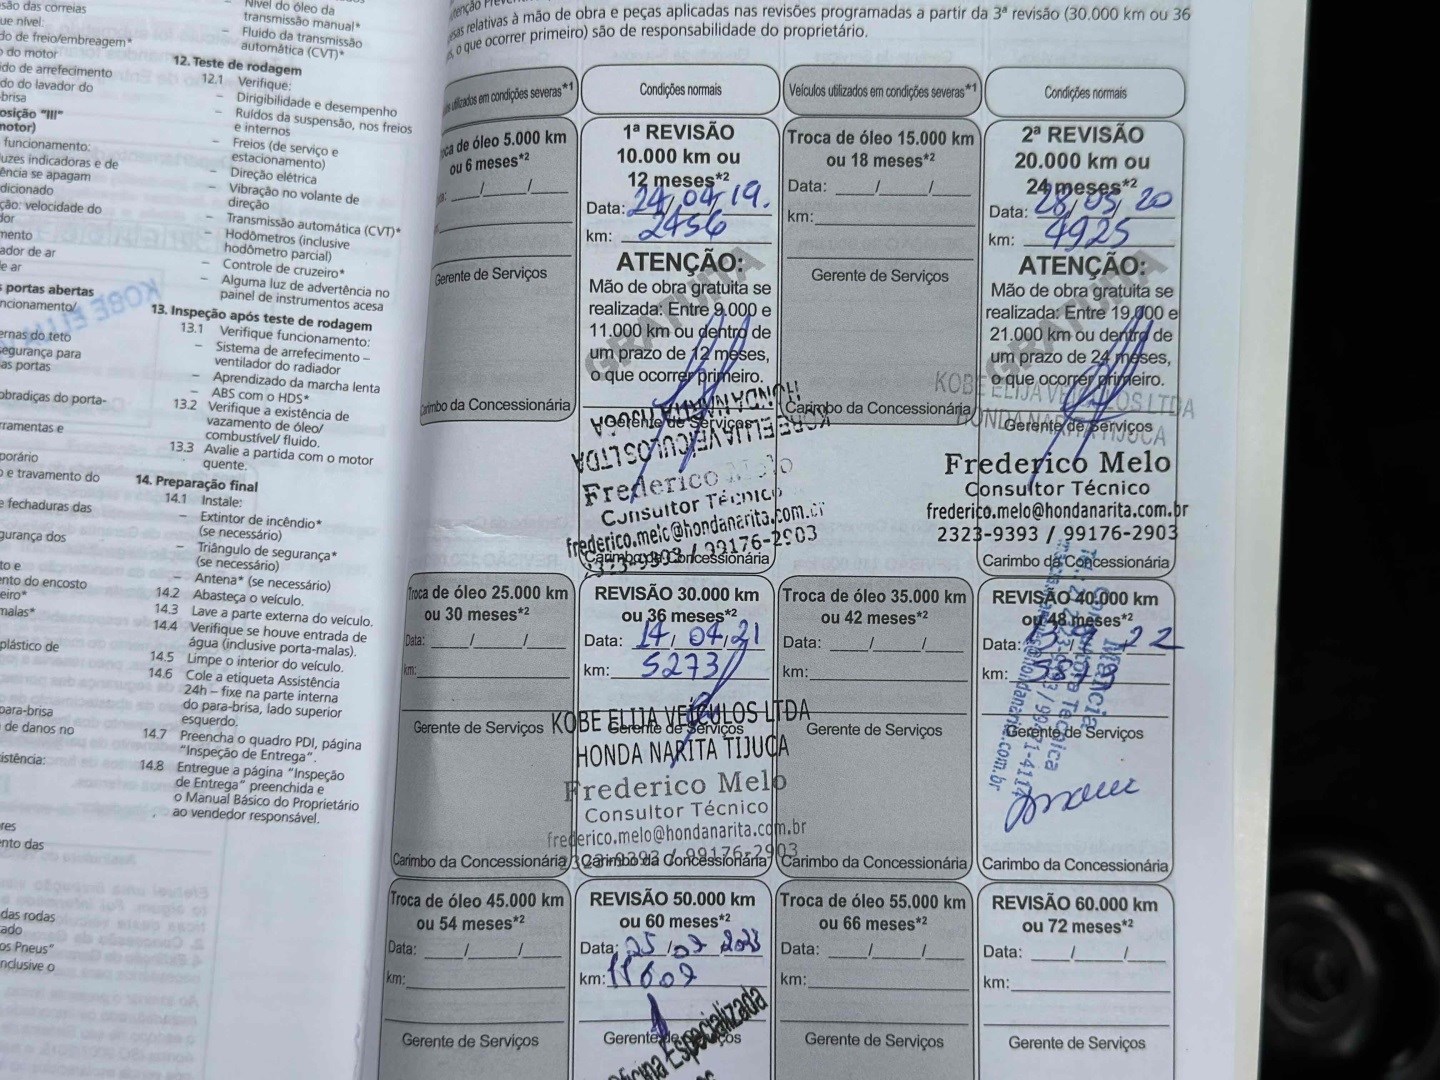 são das correias
que nível:
do de freio/embreagem*
o do motor
ido de arrefecimento
do do lavador do
brisa
osição "III"
motor)
funcionamento:
luzes indicadoras e de
ência se apagam
dicionado
ção: velocidade do
dor
mento
ador de ar
e ar
s portas abertas
ncionamento/
ernas do teto
segurança para
as portas
obradiças do porta-
rramentas e
porário
o e travamento do
e fechaduras das
gurança dos
to e
ento do encosto
eiro*
malas*
plástico de
para-brisa
a de danos no
istência:
res
ento das
das rodas
ado
os Pneus"
nclusive o
Nível do óleo da
transmissão manual*
– Fluido da transmissão
automática (CVT)*
12. Teste de rodagem
12.1 Verifique:
– Dirigibilidade e desempenho
– Ruídos da suspensão, nos freios
e internos
– Freios (de serviço e
estacionamento)
– Direção elétrica
– Vibração no volante de
direção
– Transmissão automática (CVT)*
– Hodômetros (inclusive
hodômetro parcial)
– Controle de cruzeiro*
– Alguma luz de advertência no
painel de instrumentos acesa
13. Inspeção após teste de rodagem
13.1 Verifique funcionamento:
– Sistema de arrefecimento –
ventilador do radiador
– Aprendizado da marcha lenta
– ABS com o HDS*
13.2 Verifique a existência de
vazamento de óleo/
combustível/ fluido.
13.3 Avalie a partida com o motor
quente.
14. Preparação final
14.1 Instale:
– Extintor de incêndio*
(se necessário)
– Triângulo de segurança*
(se necessário)
– Antena* (se necessário)
14.2 Abasteça o veículo.
14.3 Lave a parte externa do veículo.
14.4 Verifique se houve entrada de
água (inclusive porta-malas).
14.5 Limpe o interior do veículo.
14.6 Cole a etiqueta Assistência
24h – fixe na parte interna
do para-brisa, lado superior
esquerdo.
14.7 Preencha o quadro PDI, página
"Inspeção de Entrega".
14.8 Entregue a página "Inspeção
de Entrega" preenchida e
o Manual Básico do Proprietário
ao vendedor responsável.
esas relativas à mão de obra e peças aplicadas nas revisões programadas a partir da 3ª revisão (30.000 km ou 36
s, o que ocorrer primeiro) são de responsabilidade do proprietário.
os utilizados em condições severas*1
Condições normais
Veículos utilizados em condições severas*1
Condições normais
oca de óleo 5.000 km
ou 6 meses*2
Gerente de Serviços
Carimbo da Concessionária
1ª REVISÃO
10.000 km ou
12 meses*2
Data: 24/04/19.
km: 2456
GRATUITA
ATENÇÃO:
Mão de obra gratuita se
realizada: Entre 9.000 e
11.000 km ou dentro de
um prazo de 12 meses,
o que ocorrer primeiro.
KOBE ELIJA VEÍCULOS LTDA
HONDA NARITA TIJUCA
Gerente de Serviços
Frederico Melo
Consultor Técnico
frederico.melo@hondanarita.com.br
2323-9393 / 99176-2903
Carimbo da Concessionária
Troca de óleo 15.000 km
ou 18 meses*2
Data: ___/___/___
km:
Gerente de Serviços
Carimbo da Concessionária
2ª REVISÃO
20.000 km ou
24 meses*2
Data: 28/05/20
km: 4925
GRATUITA
ATENÇÃO:
Mão de obra gratuita se
realizada: Entre 19.000 e
21.000 km ou dentro de
um prazo de 24 meses,
o que ocorrer primeiro.
KOBE ELIJA VEÍCULOS LTDA
HONDA NARITA TIJUCA
Gerente de Serviços
Frederico Melo
Consultor Técnico
frederico.melo@hondanarita.com.br
2323-9393 / 99176-2903
Carimbo da Concessionária
Troca de óleo 25.000 km
ou 30 meses*2
Data: ___/___/___
km:
Gerente de Serviços
Carimbo da Concessionária
REVISÃO 30.000 km
ou 36 meses*2
Data: 14/04/21
km: 5273
KOBE ELIJA VEÍCULOS LTDA
Gerente de Serviços
HONDA NARITA TIJUCA
Frederico Melo
Consultor Técnico
frederico.melo@hondanarita.com.br
2323-9393 / 99176-2903
Carimbo da Concessionária
Troca de óleo 35.000 km
ou 42 meses*2
Data: ___/___/___
km:
Gerente de Serviços
Carimbo da Concessionária
REVISÃO 40.000 km
ou 48 meses*2
Data: 22
km: 5873
Gerente de Serviços
Carimbo da Concessionária
Troca de óleo 45.000 km
ou 54 meses*2
Data: ___/___/___
km:
Gerente de Serviços
REVISÃO 50.000 km
ou 60 meses*2
Data: 25/07 2023
km: 11609
Gerente de Serviços
Oficina Especializada
Troca de óleo 55.000 km
ou 66 meses*2
Data: ___/___/___
km:
Gerente de Serviços
REVISÃO 60.000 km
ou 72 meses*2
Data: ___/___/___
km:
Gerente de Serviços